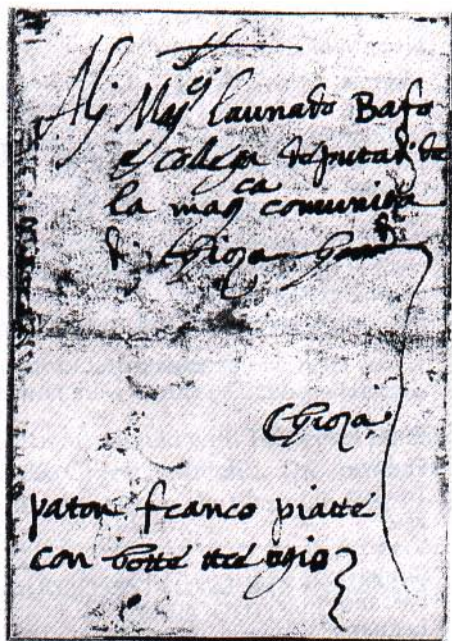 Alj Mag.ci launado Bafo
e collega deputadj de
la mag ca comunita
dj Chioza
Chioza
paton franco piatte
con botte tre